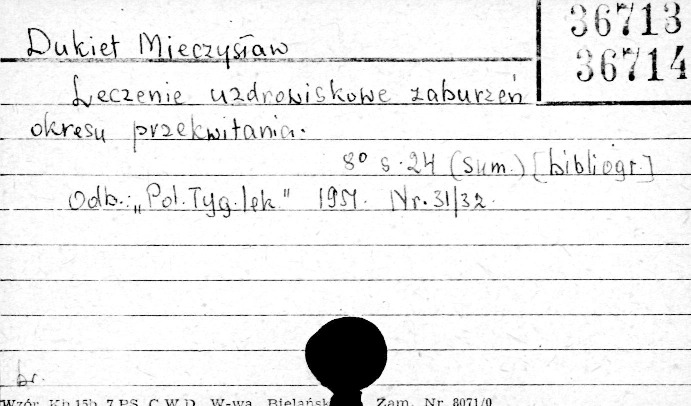 36713
36714
Dukiet Mieczysław
Leczenie uzdrowiskowe zaburzeń
okresu przekwitania.
8° s. 24 (sum.) [bibliogr.]
Odb.: „Pol. Tyg. lek." 1951. Nr. 31/32.
br.
Wzór. Kb 15b 7 PS. C.W.D. W-wa, Bielańsk Zam. Nr. 8071/0